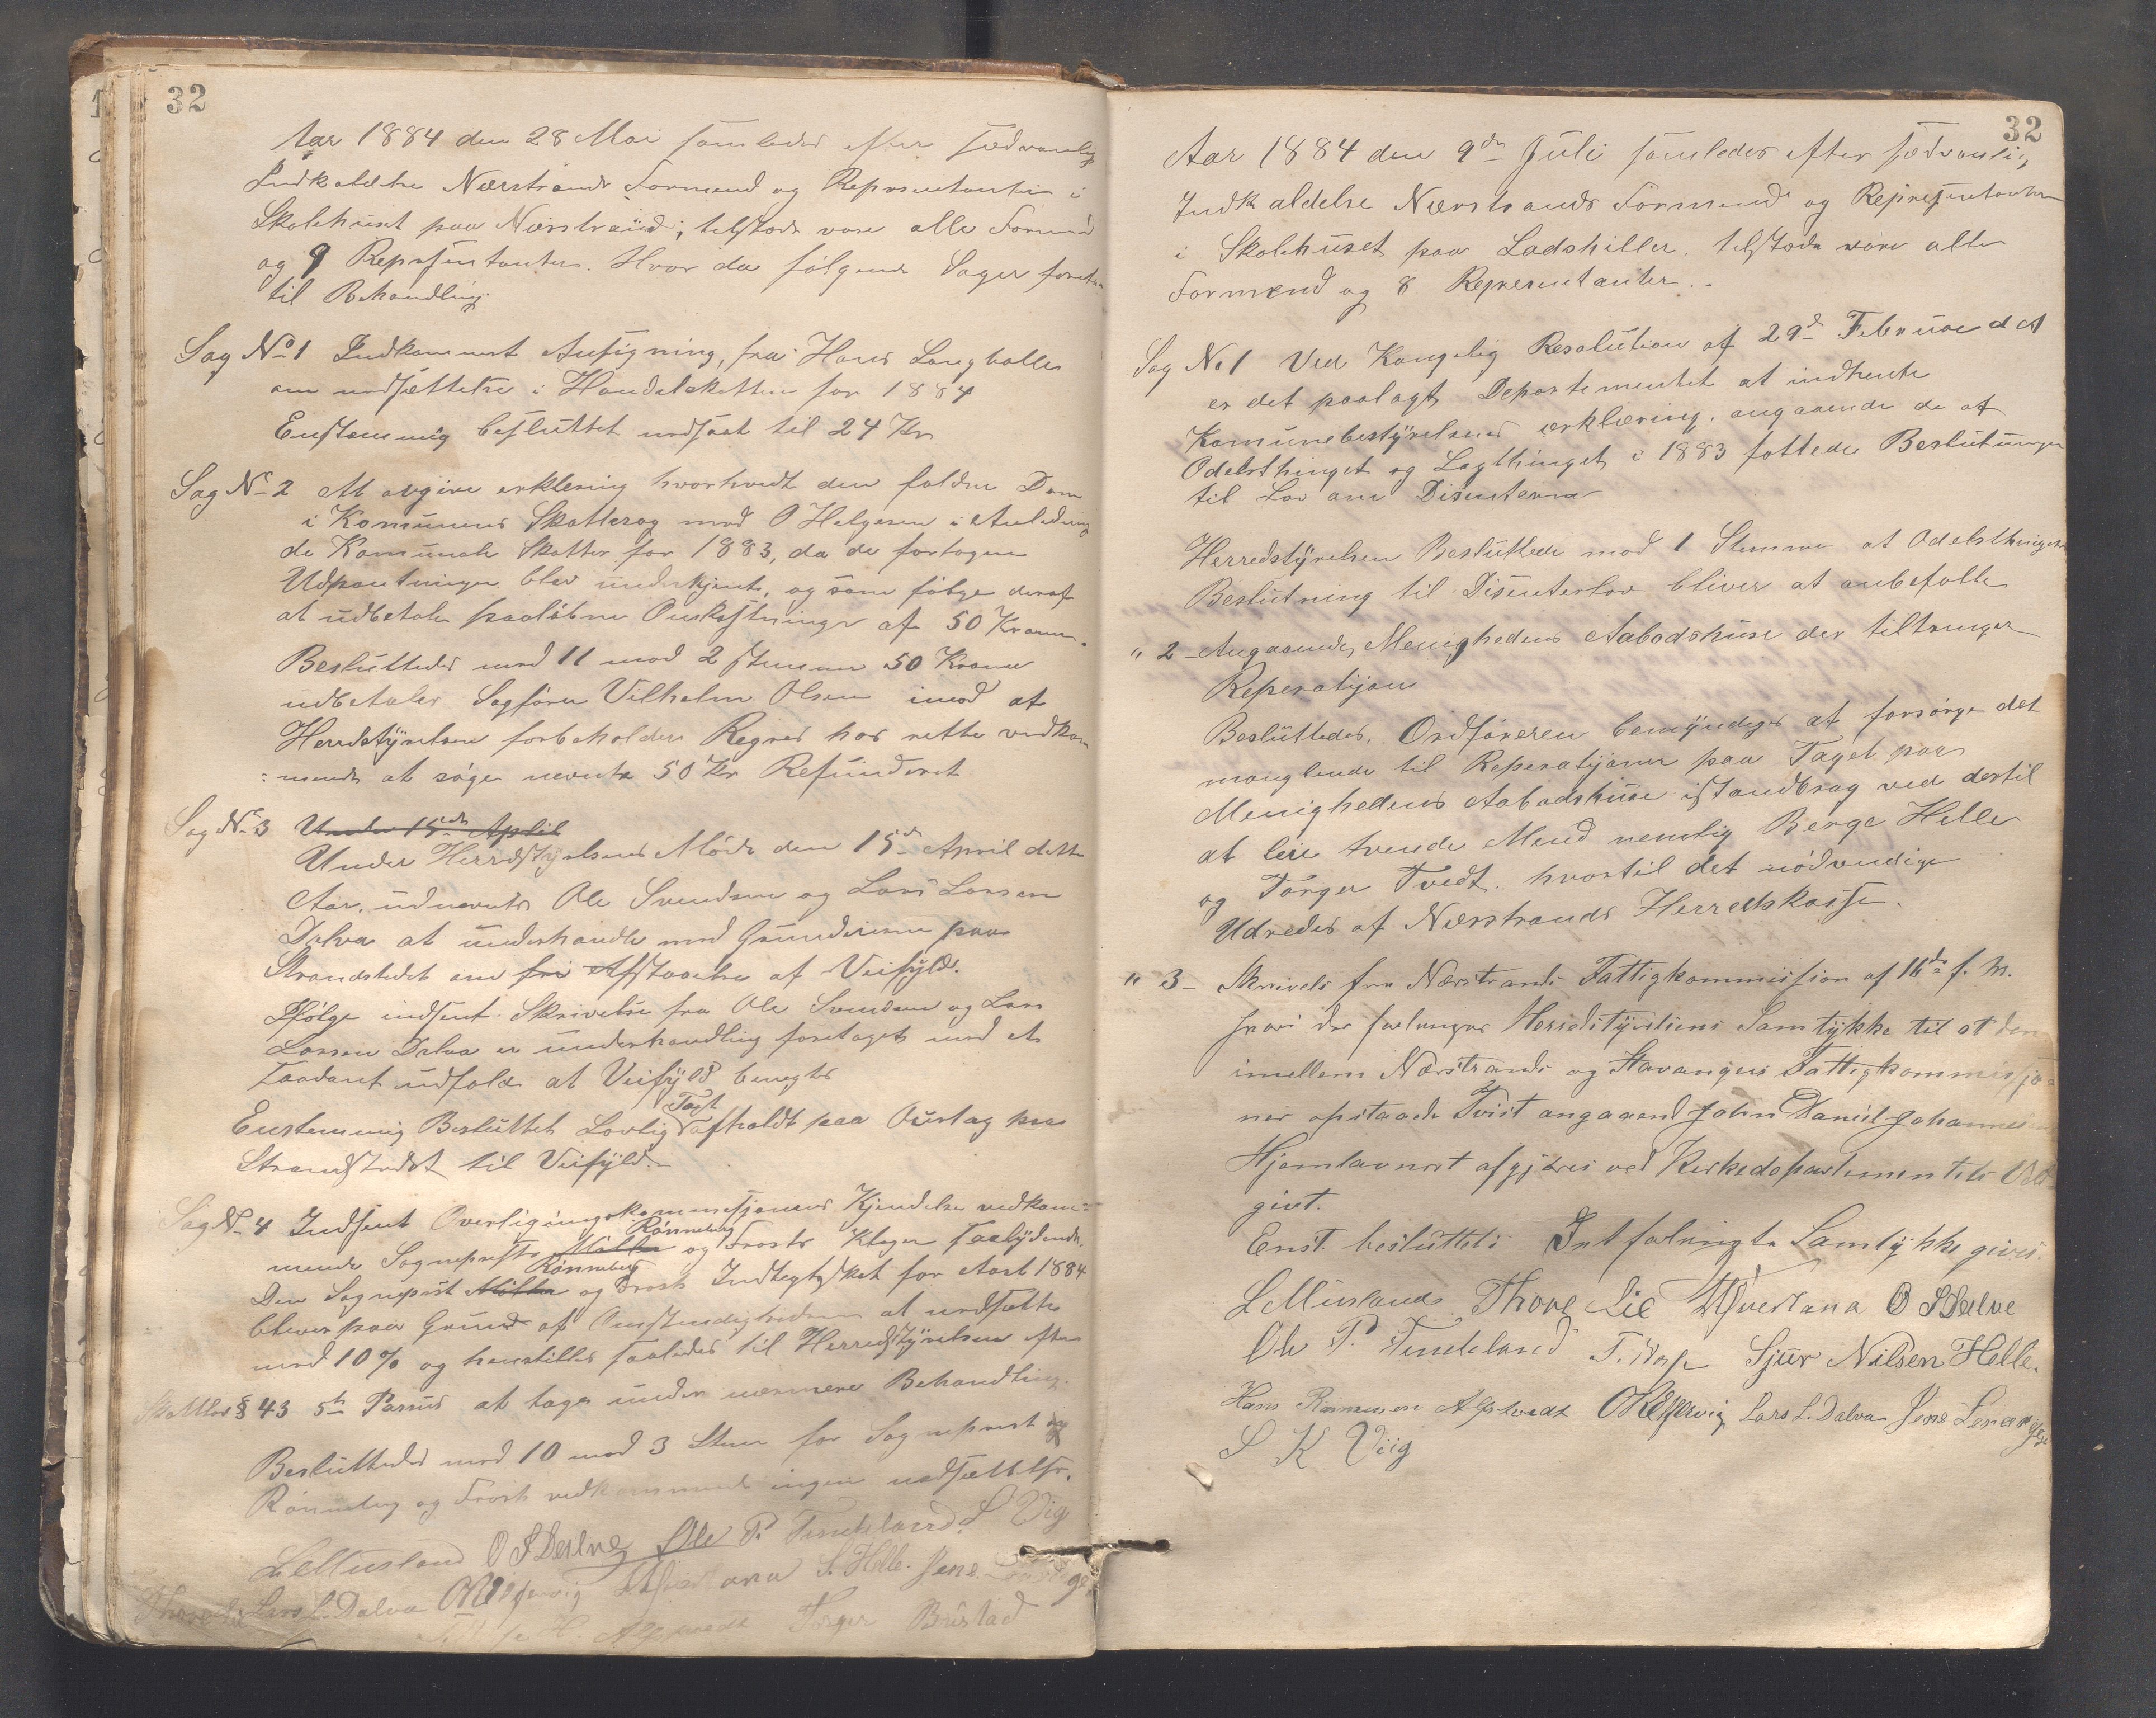 32
Aar 1884 den 28 Mai samledes efter sædvanlig
Indkaldelse Nærstrands Formend og Representanter i
Skolehuset paa Nærstrand; tilstede vare alle Formend
og 9 Repræsentanter. Hvor da følgende Sager foretages
til Behandling.
Sag No 1 Indkommet Ansøgning, fra Hans Langballe
om nedsættelse i Handelskatten for 1884
Enstemmig besluttet nedsat til 24 Kr
Sag No 2 At avgive erklering hvorhvidt den faldne Dom
i Komunens Skattesag med O Helgesen i Anledning
de Komunale Skatter for 1883, da de fortagne
Udpantninger blev underkjent, og som følge deraf
at udbetale paaløbne Omkostninger af 50 Kroner.
Besluttedes med 11 mod 2 stemmer 50 Kroner
udbetales Sagfører Vilhelm Olsen imod at
Herredstyrelsen forbeholder Regres hos rette vedkom
:mende at søge nevnte 50 Kr Refunderet
Sag No 3 Under 15de April
Under Herredstyrelsens Møde den 15de April dette
Aar, udnevntes Ole Svendsen og Lars Larsen
Dalva at underhandle med Grundeierne paa
Strandstedet om fri Afstaaelse af Veifyld.
Ifølge indsent Skrivelse fra Ole Svendsen og Lars
Larsen Dalva er underhandling foretaget med et
saadant udfald at Veifyld benegtes
Enstemmig Besluttet Lovlig Taxt afholdt paa Ourtag paa
Strandstedet til Veifyld.
Sag No 4 Indsent Overligningskommissjonens Kjendelse vedkom=
mende Sogneprest Møller Rønneberg og Frosts Klager saalydende,
Den Sogneprest Møller Rønneberg og Frosts Indtegtsskat for Aaret 1884
bliver paa Grund af Omstendighederne at nedsætte
med 10 % og henstilles saaledes til Herredstyrelsen efter
Skattelov § 43 5te Passus at tage under nærmere Behandling.
Besluttedes med 10 mod 3 Stem for Sogneprest
Rønneberg og Frosts vedkommende ingen nedsættelse.
L Musland O S Dalva Ole P. Tindeland S Vig
Thore Lie Lars L. Dalva S. Helle. Jens
H. Alstvedt Torger Bustad
32
Aar 1884 den 9de Juli samledes efter sædvanlig
Indkaldelse Nærstrands Formend og Repræsentanter
i Skolehuset paa Ladshiller. tilstede vare alle
Formænd og 8 Representanter.
Sag No 1 Ved Kongelig Resolution af 29de Februar d A
er det paalagt Departementet at indhente
Komunebestyrelsens erklæring, angaaende de af
Odelsthinget og Lagthinget i 1883 fattede Beslutninger
til Lov om Disenterne
Herredstyrelsen Besluttede mod 1 Stemme at Odelsthingets
Beslutning til Disenterlov bliver at anbefalle
" 2 Angaaende Menighedens Aabodshuse der tiltrenger
Reperatijon
Besluttedes, Ordføreren bemyndiges at forsørge det
manglende til Reperatijoner paa Taget paa
Menighedens Aabodshuse istandbrag ved dertil
at leie tvende Mend nemlig Berge Helle
og Torger Tvedt. hvortil det nødvendige
Udredes af Nærstrands Herredskasse.
" 3 Skrivels fra Nærstrands Fattigkommission af 16de f. M.
hvori der forlanges Herredstyrelsens Samtykke til at den
imellem Nærstrands og Stavangers Fattigkommissjo=
ner opstaaede Tvist angaaend John Daniel Johannesen
Hjemlavnsret afgjøres ved Kirkedepartementets Vold
givt.
Enst. besluttets Det forlangte Samtykke gives.
L Musland Thore Lie O S Dalva
Ole P. Tindeland Sjur Nilsen Helle.
Hans Rasmussen Alstvedt Lars L. Dalva Jens
S K Viig